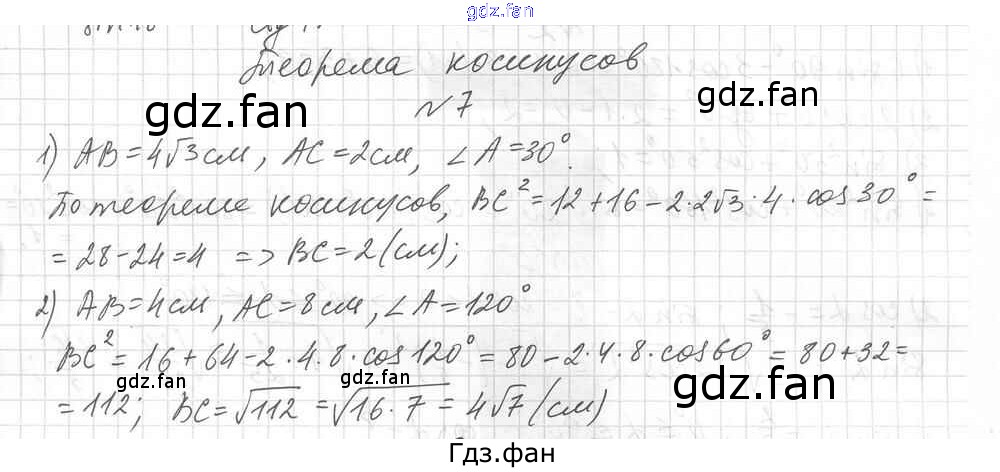 gdz.fan
Теорема косинусов
№ 7
gdz.fan
gdz.fan
1) AB=4√3см, AC=2см, ∠A=30°.
По теореме косинусов, BC²=12+16-2·2√3·4·cos30°=
=28-24=4 => BC=2(см);
2) AB=4см, AC=8см, ∠A=120°
BC²=16+64-2·4·8·cos120°=80-2·4·8·cos60°=80+32=
gdz.fan
gdz.fan
gdz.fan
=112; BC=√112=√16·7=4√7(см)
Гдз.фан